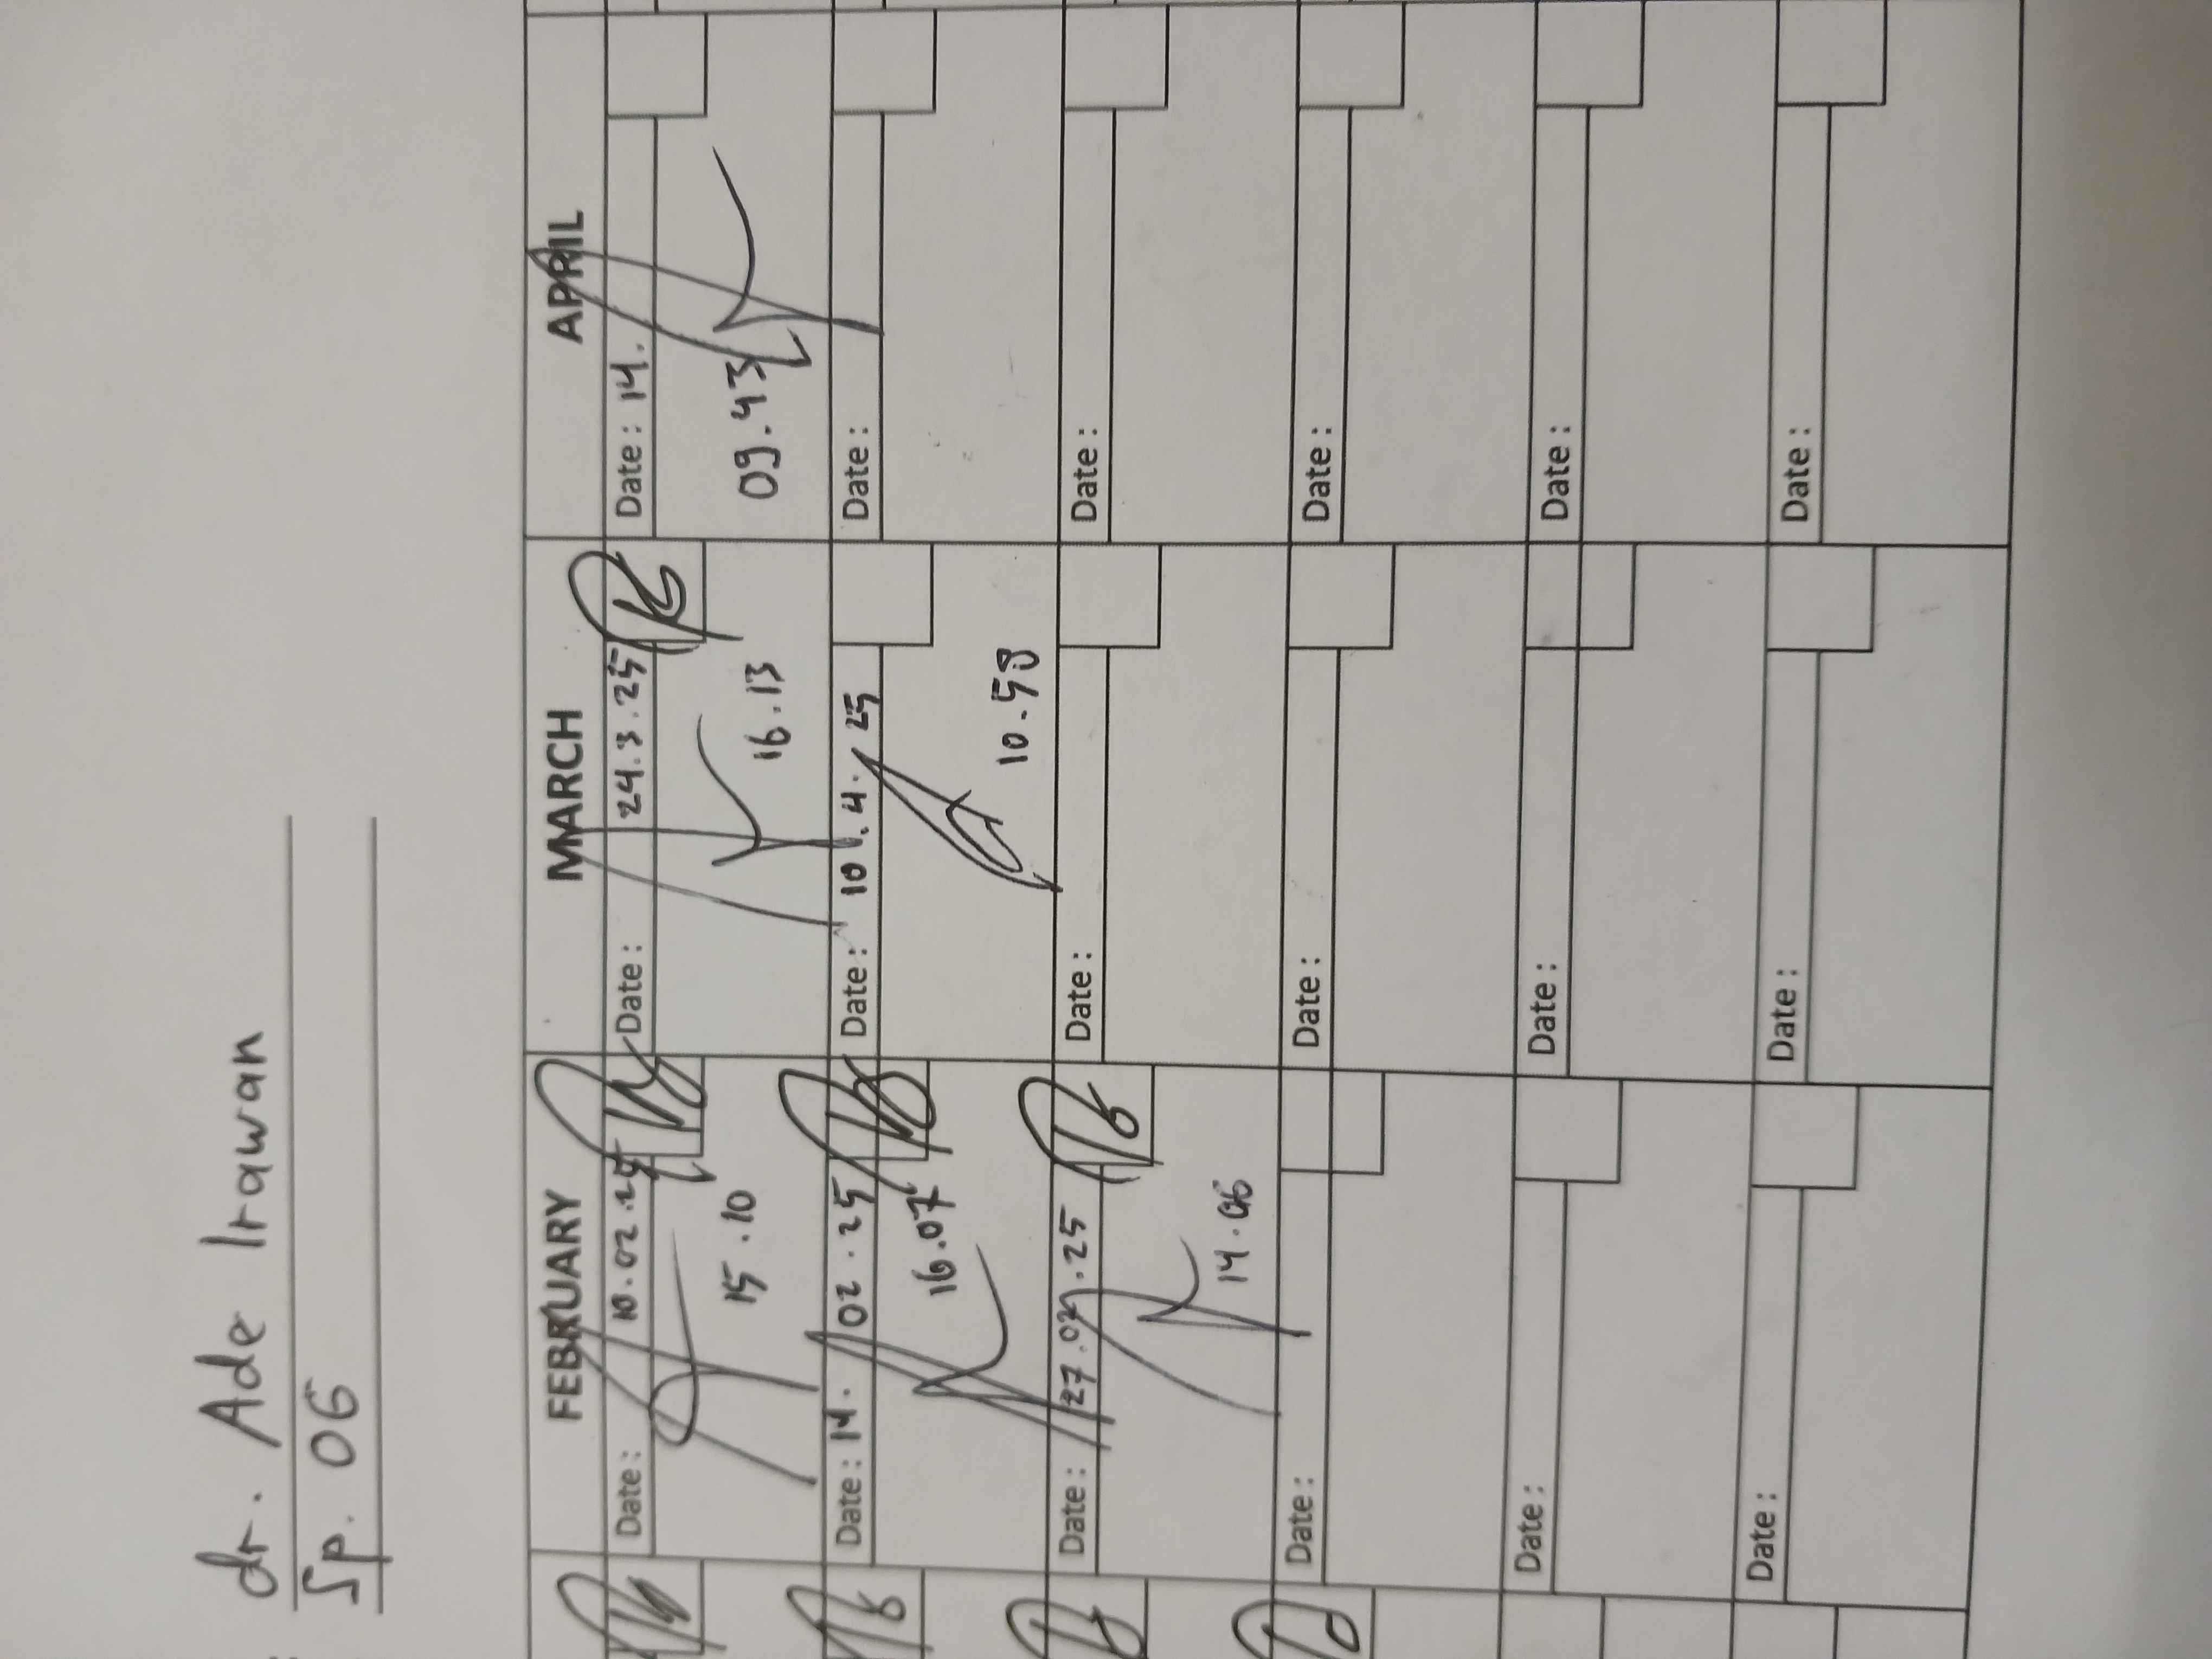 dr. Ade Irawan
Sp. OG
FEBRUARY MARCH APRIL
Date: 10.02.25 Date: 24.3.25 Date: 14.
15.10 16.13 09.43
Date: 14. 02.25 Date: 10.4.25 Date:
16.07 10.58
Date: 27.02.25 Date: Date:
14.06
Date: Date: Date:
Date: Date: Date:
Date: Date: Date: